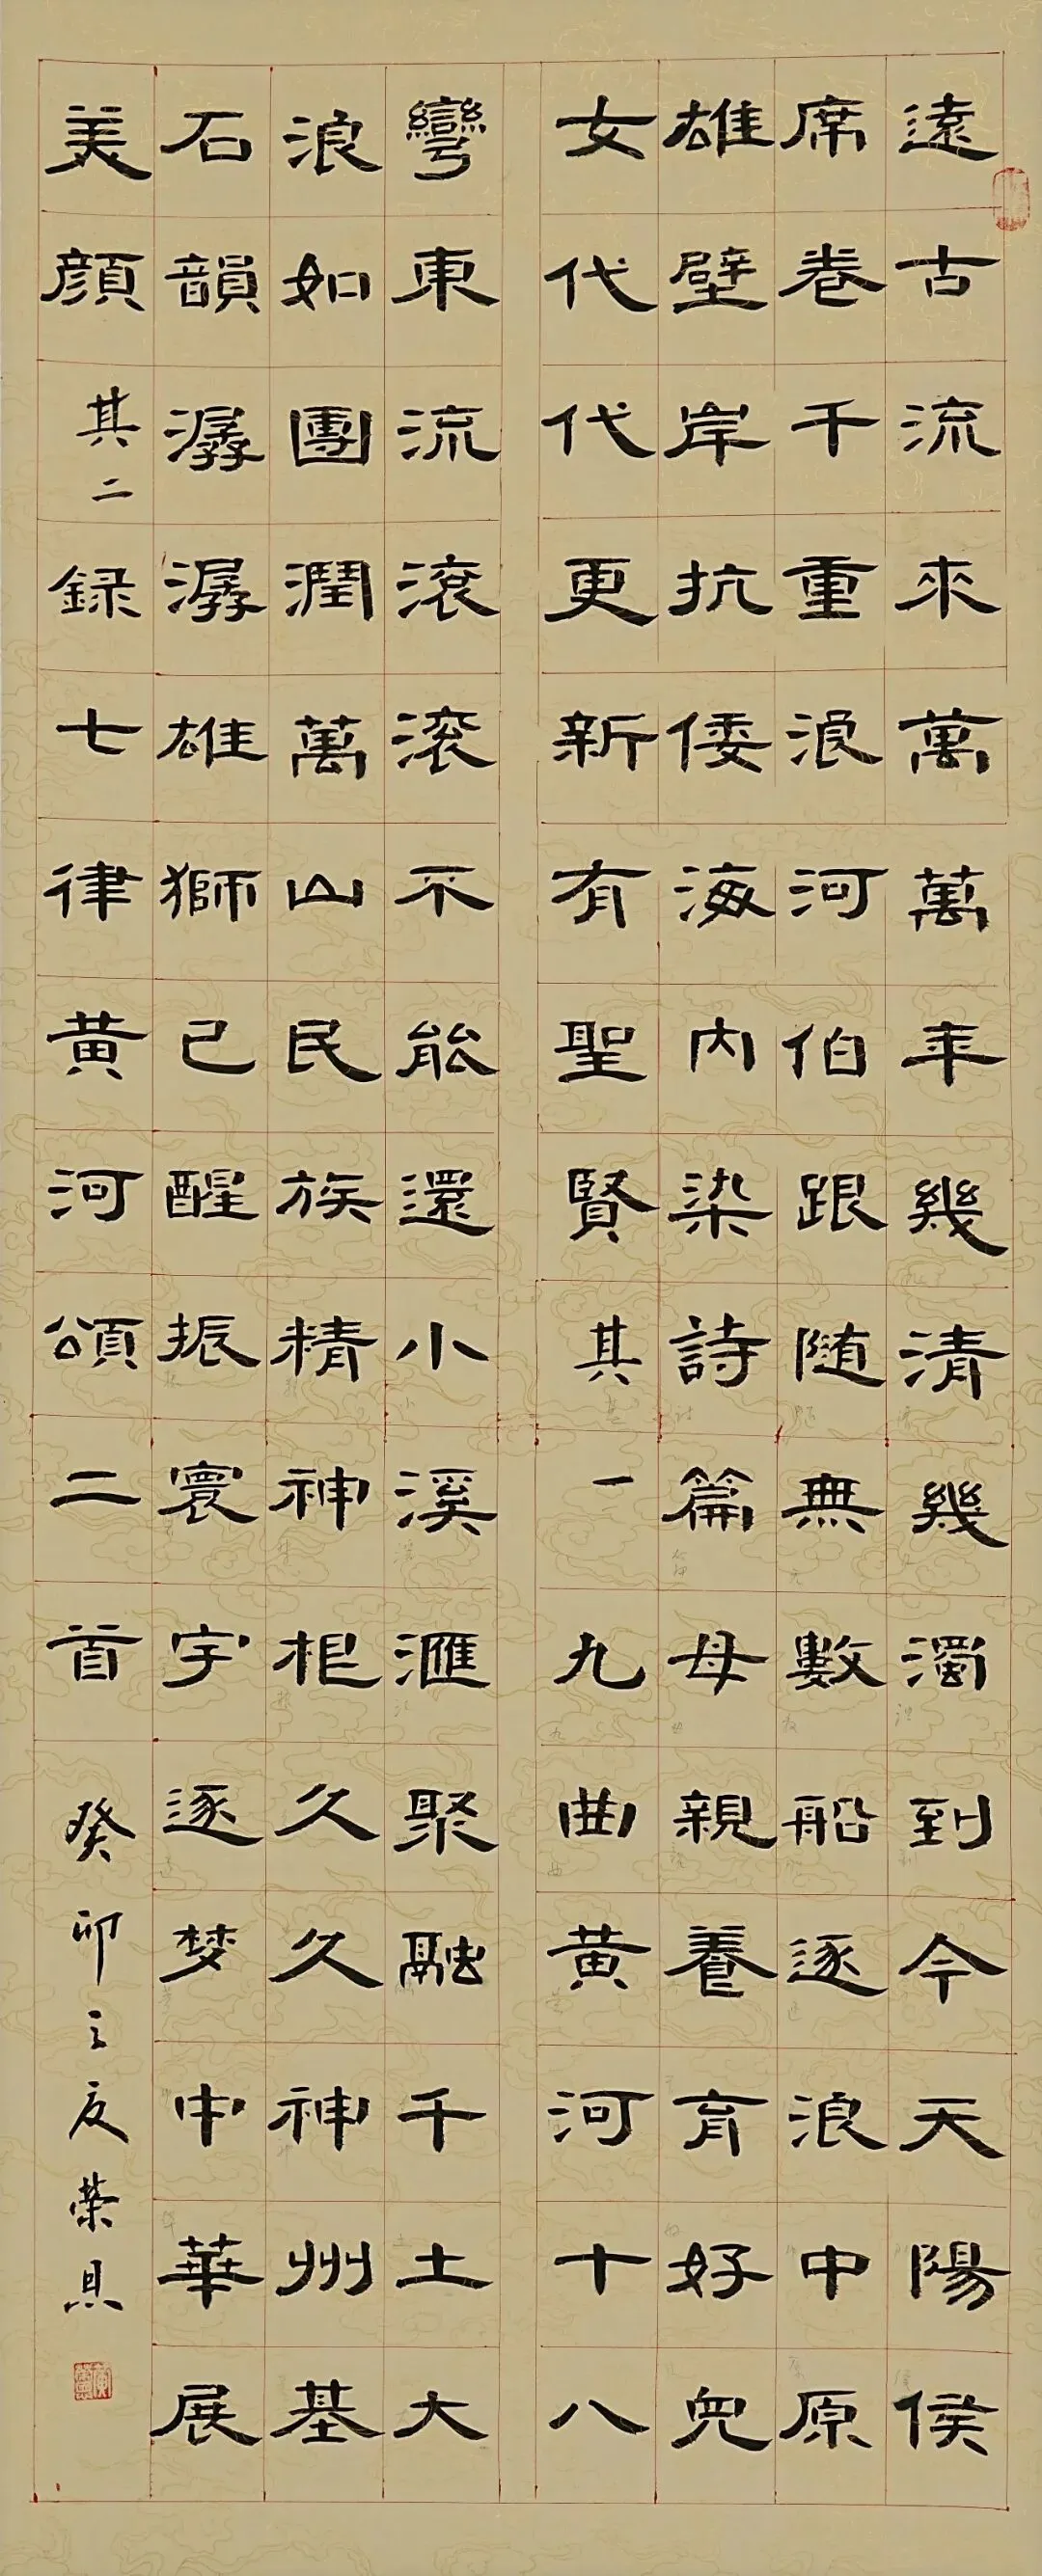 遠古流來萬萬年幾清幾濁到今天陽侯
席卷千重浪河伯跟随無數船逐浪中原
雄壁岸抗倭海内染詩篇母親養育好兒
女代代更新有聖賢其一九曲黄河十八
彎東流滚滚不能還小溪滙聚融千土大
浪如團潤萬山民族精神根久久神州基
石韻潺潺雄獅已醒振寰宇逐梦中華展
美顔其二録七律黄河頌二首癸卯之夏榮